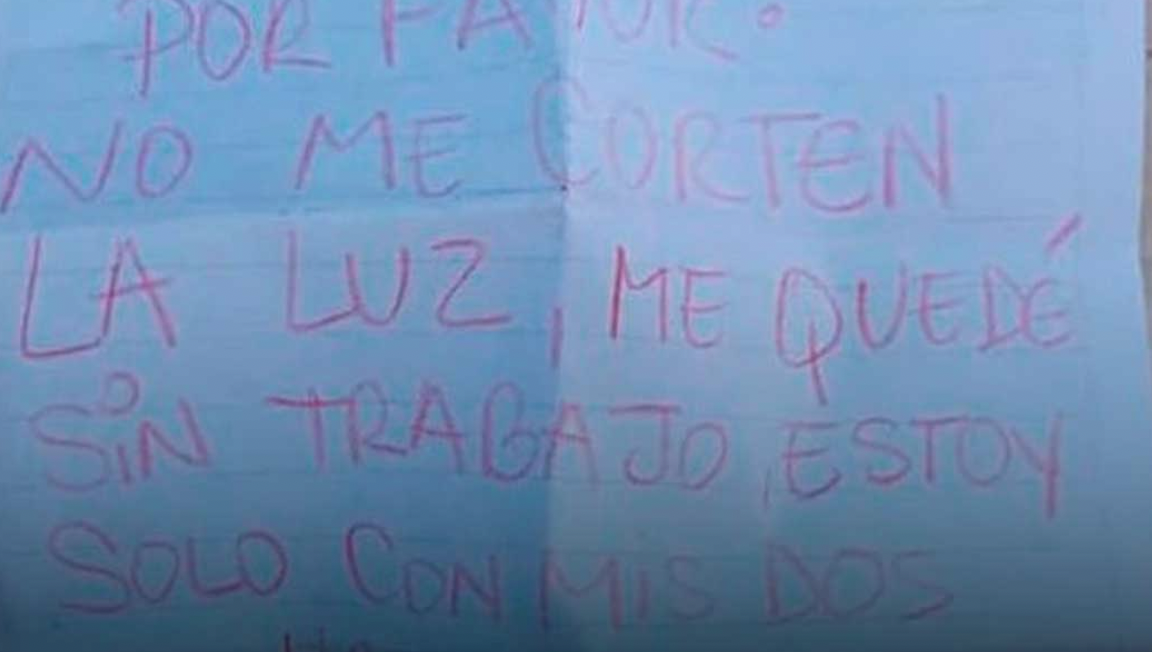 POR FAVOR.
NO ME CORTEN
LA LUZ, ME QUEDÉ
SiN TRABAJO, ESTOY
SOLO CON MiS DOS